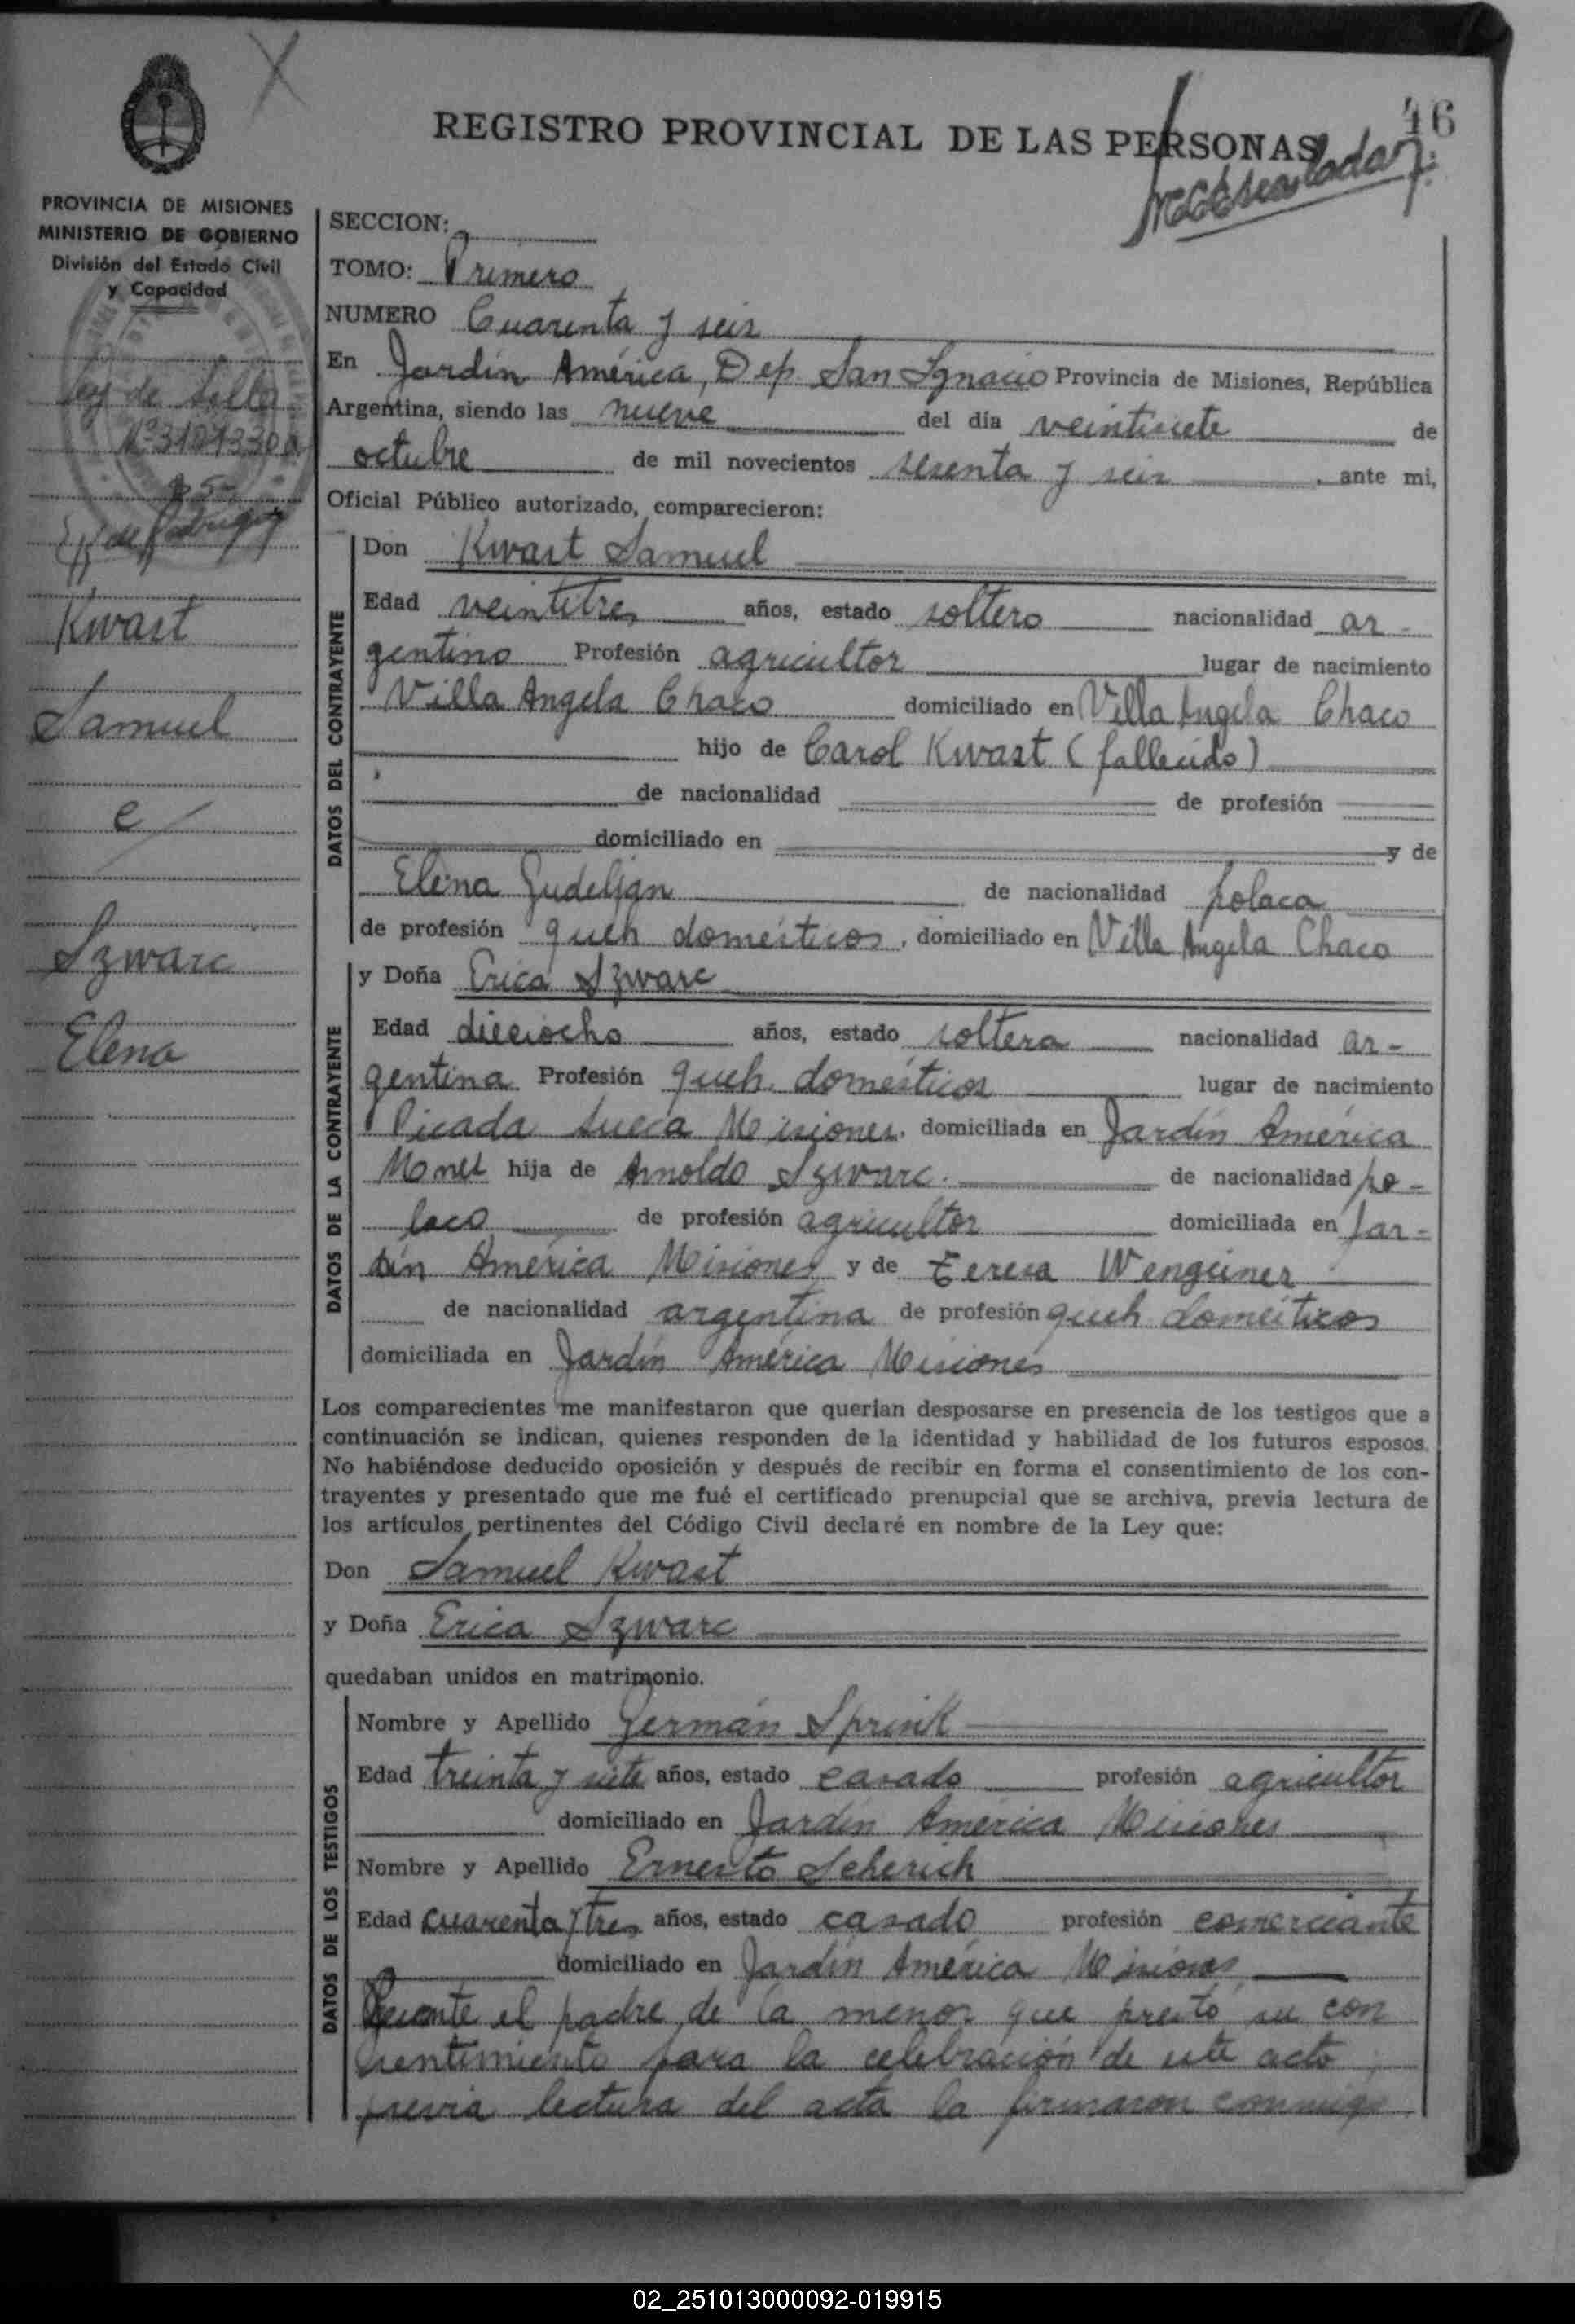 46
REGISTRO PROVINCIAL DE LAS PERSONAS
PROVINCIA DE MISIONES
MINISTERIO DE GOBIERNO
División del Estado Civil
y Capacidad
Ley de Sello
Kwast
Samuel
e/
Szwarc
Elena
SECCION:
TOMO: Primero
NUMERO Cuarenta y seis
En Jardín América, Dep. San Ignacio Provincia de Misiones, República
Argentina, siendo las nueve del día veintisiete de
octubre de mil novecientos sesenta y seis, ante mi,
Oficial Público autorizado, comparecieron:
DATOS DEL CONTRAYENTE
Don Kwast Samuel
Edad veintitres años, estado soltero nacionalidad ar-
gentino Profesión agricultor lugar de nacimiento
Villa Angela Chaco domiciliado en Villa Angela Chaco
hijo de Carol Kwast (fallecido)
de nacionalidad de profesión
domiciliado en y de
Elena Gudeljan de nacionalidad polaca
de profesión queh domésticos, domiciliado en Villa Angela Chaco
DATOS DE LA CONTRAYENTE
y Doña Erica Szwarc
Edad dieciocho años, estado soltera nacionalidad ar-
gentina Profesión queh. domésticos lugar de nacimiento
Picada Sueca Misiones, domiciliada en Jardín América
Mones hija de Arnoldo Szwarc. de nacionalidad po-
laco de profesión agricultor domiciliada en Jar-
dín América Misiones y de Teresa Wenguiner
de nacionalidad argentina de profesión queh domésticos
domiciliada en Jardín América Misiones
Los comparecientes me manifestaron que querían desposarse en presencia de los testigos que a
continuación se indican, quienes responden de la identidad y habilidad de los futuros esposos.
No habiéndose deducido oposición y después de recibir en forma el consentimiento de los con-
trayentes y presentado que me fué el certificado prenupcial que se archiva, previa lectura de
los artículos pertinentes del Código Civil declaré en nombre de la Ley que:
Don Samuel Kwast
y Doña Erica Szwarc
quedaban unidos en matrimonio.
DATOS DE LOS TESTIGOS
Nombre y Apellido Germán Sprink
Edad treinta y siete años, estado casado profesión agricultor
domiciliado en Jardín América Misiones
Nombre y Apellido Ernesto Scherich
Edad cuarenta y tres años, estado casado profesión comerciante
domiciliado en Jardín América Misiones
Presente el padre de la menor que prestó su con
sentimiento para la celebración de este acto,
previa lectura del acta la firmaron conmigo
02_251013000092-019915